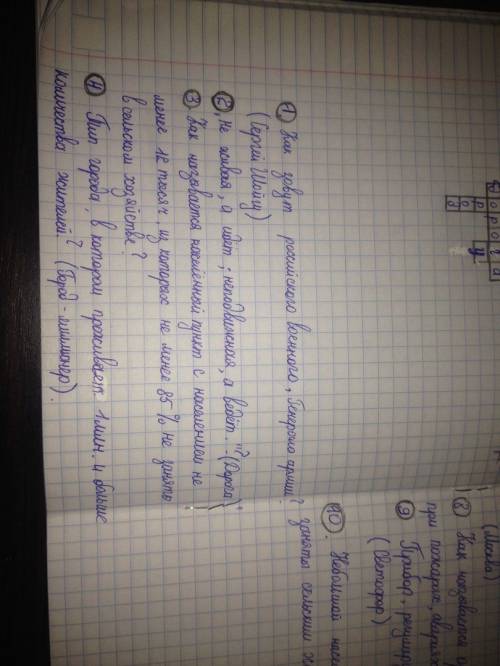 ① Как зовут российского военного, Генерала армии?
(Сергей Шойгу)
②, Не живая, а идёт; неподвижная, а ведёт..."? (Дорога)
③. Как называется населённый пункт с населением не
менее 12 тысяч, из которых не менее 85% не заняты
в сельском хозяйстве?
④ Тип города, в котором проживает 1 млн. и больше
количества жителей? (Город-миллионер).
(Москва)
⑧ Как называется
при пожарах,
⑨ Прибор,
(Светофор)
⑩. Небольшой
заняты сельским